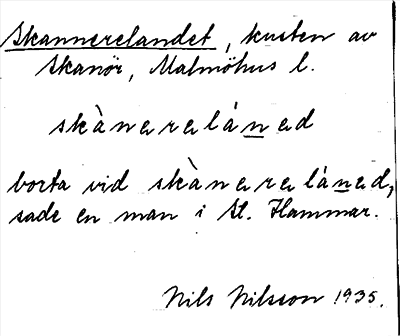 Skannerelandet, kusten av
Skanör, Malmöhus l.
skànərəlánəd
borta vid skànərəlánəd,
sade en man i St. Hammar.
Nils Nilsson 1935.